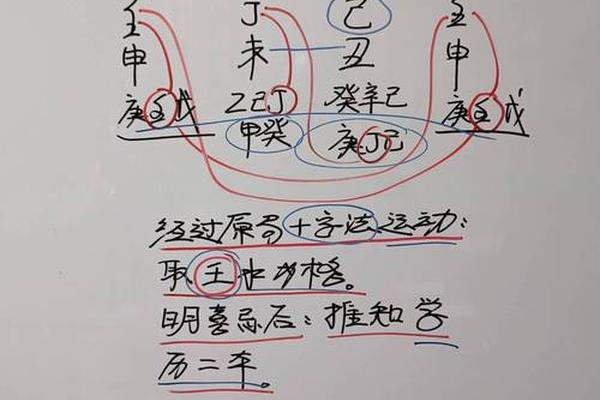 壬 丁 己 壬
申 未 丑 申
庚壬戊 乙己丁 癸辛己 庚壬戊
甲癸 庚丁己
经过原局十字法运动：
取壬水为格。
明喜忌后：推知学
历二本。